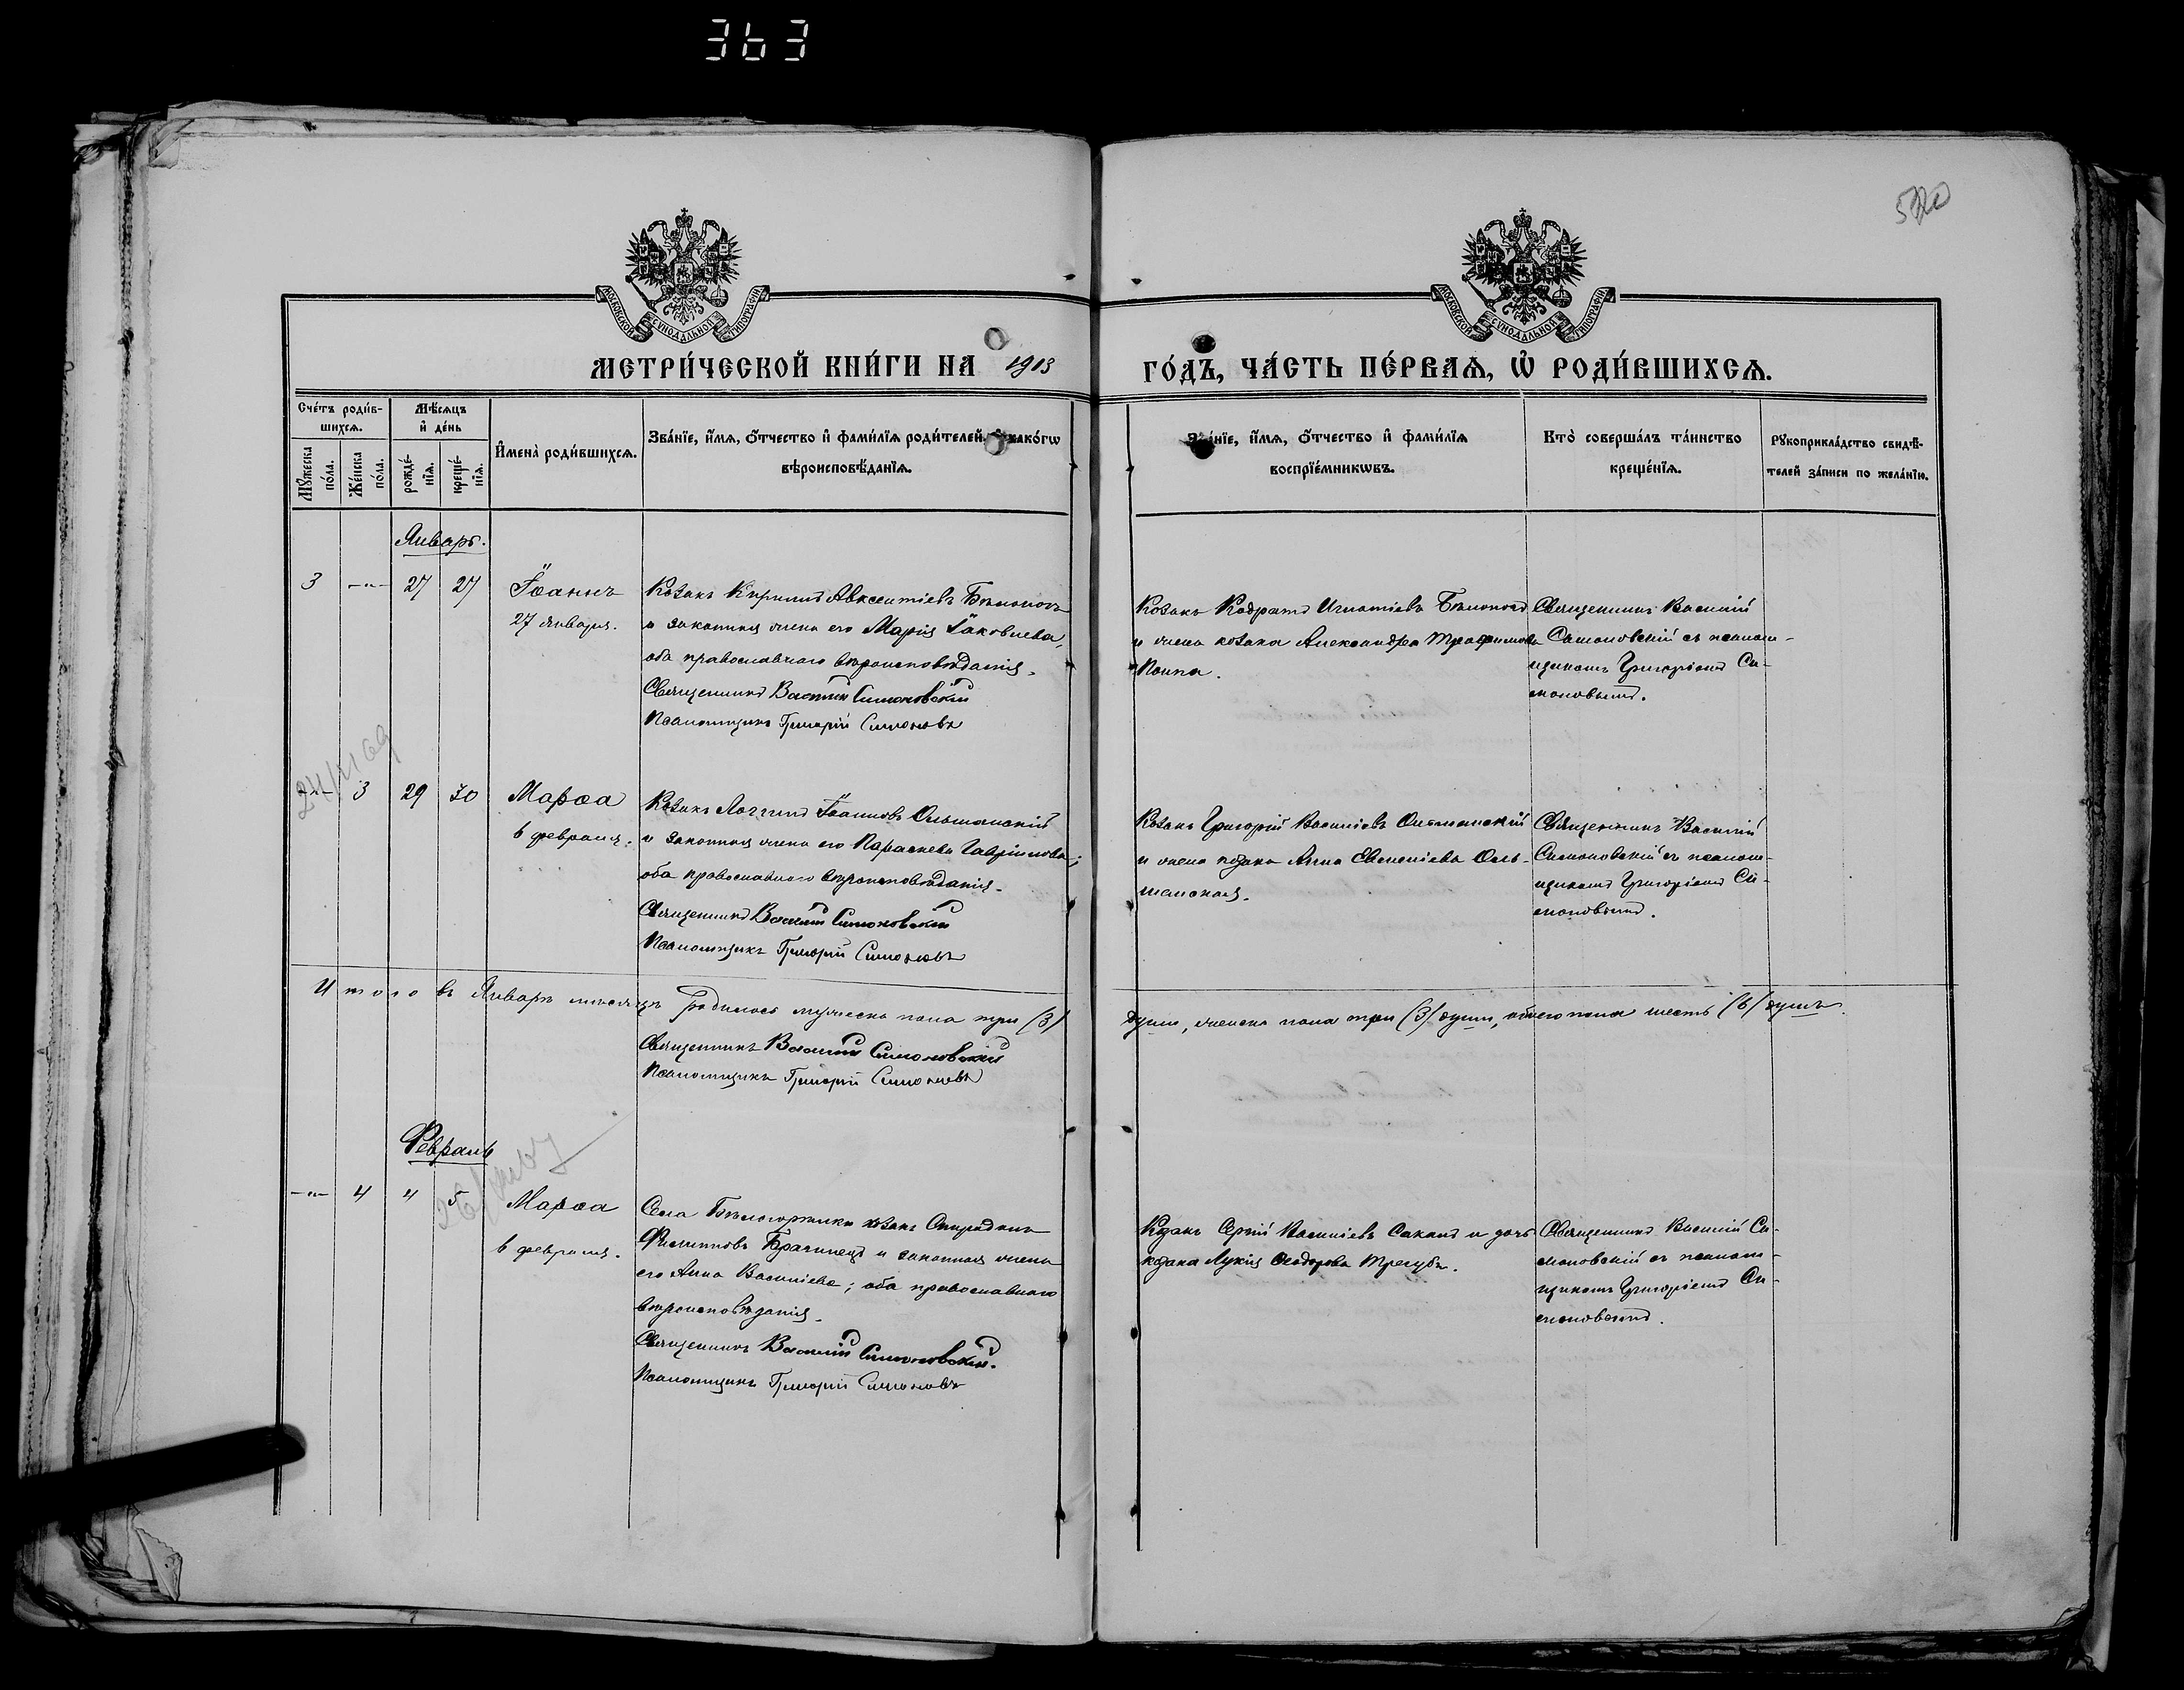 363
520
МОСКОВСКОЙ СѴНОДАЛЬНОЙ ТИПОГРАФІИ
МОСКОВСКОЙ СѴНОДАЛЬНОЙ ТИПОГРАФІИ
МЕТРИ́ЧЕСКОЙ КНИ́ГИ НА 1913
ГО́ДЪ, ЧА́СТЬ ПЕ́РВАѦ, Ѡ҆ РОДИ́ВШИХСѦ.
Сче́тъ роди́в-
шихсѧ.
Мꙋ́жеска по́ла.
Же́нска по́ла.
Мѣ́сѧцъ
и҆ де́нь
рожде́-
нїѧ.
креще́-
нїѧ.
И҆мена̀ роди́вшихсѧ.
Зва́нїе, и҆́мѧ, ѻ҆́тчество и҆ фами́лїѧ роди́телей, и҆ како́гѡ
вѣроисповѣ́данїѧ.
Зва́нїе, и҆́мѧ, ѻ҆́тчество и҆ фами́лїѧ
воспрїе́мникѡвъ.
Кто̀ соверша́лъ та́инство
креще́нїѧ.
Рꙋкоприкла́дство свидѣ́-
телей за́писи по жела́нїю.
Январь.
3 -„- 27 27 Іоаннъ
27 января.
Козакъ Кириллъ Авксентіевъ Бѣлоконь
и законная жена его Марія Іаковлева,
оба православнаго вѣроисповѣданія.
Священникъ Василій Симоновскій
Псаломщикъ Григорій Симоновъ
Козакъ Кодратъ Игнатіевъ Бѣлоконь
и жена козака Александра Трофимова
Священникъ Василій
Симоновскій съ псалом-
щикомъ Григоріемъ Си-
моновымъ.
-„- 3 29 30 Марѳа
6 февраля.
Козакъ Логгинъ Іоанновъ Ольшанскій
и законная жена его Параскева Гавріилова;
оба православнаго вѣроисповѣданія.
Священникъ Василій Симоновскій
Псаломщикъ Григорій Симоновъ
Козакъ Григорій Василіевъ Ольшанскій
и жена козака Анна Евгеніева Оль-
шанская.
Священникъ Василій
Симоновскій съ псалом-
щикомъ Григоріемъ Си-
моновымъ.
Итого въ Январѣ мѣсяцѣ родилось мужеска пола три (3)
души, женска пола три (3) души, обоего пола шесть (6) душъ.
Священникъ Василій Симоновскій
Псаломщикъ Григорій Симоновъ
Февраль
-„- 4 4 5 Марѳа
6 февраля.
Села Бѣлогорилки козакъ Спиридонъ
Филипповъ Брагинецъ и законная жена
его Анна Василіева; оба православнаго
вѣроисповѣданія.
Священникъ Василій Симоновскій.
Псаломщикъ Григорій Симоновъ
Козакъ Сергій Василіевъ Саканъ и дочь
козака Лукія Ѳеодорова Трегубъ.
Священникъ Василій Си-
моновскій съ псалом-
щикомъ Григоріемъ Си-
моновымъ.